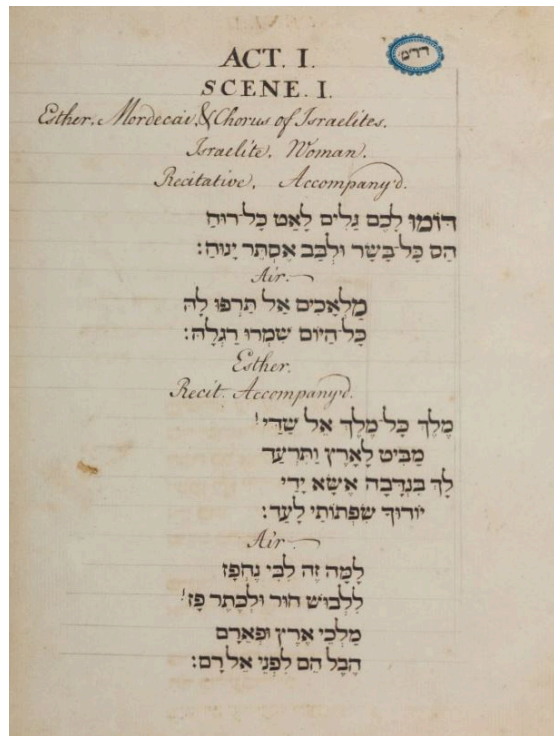 ררימ
ACT. I.
SCENE. I.
Esther. Mordecai, & Chorus of Israelites.
Israelite. Woman.
Recitative. Accompany'd.
דּוֹמּוּ לָכֶם גַלִּים לָאַט כָּל־רוּחַ
הַס כָּל־בָּשָׂר וּלְבַב אֶסְתֵּר יָנוּחַ:
Air.
מַלְאָכִים אַל תַּרְפּוּ לָהּ
כָּל־הַיּוֹם שִׁמְרוּ רַגְלָהּ:
Esther.
Recit. Accompany'd.
מֶלֶךְ כָּל־מֶלֶךְ אֵל שַׁדַּי!
מַבִּיט לָאָרֶץ וַתִּרְעַד
לָךְ בִּנְדָבָה אֶשָּׂא יָדַי
יוֹדוּךָ שִׂפְתוֹתַי לָעַד:
Air
לָמָּה זֶה לִבִּי נֶחְפַּז
לִלְבוּשׁ חוּר וּלְכֶתֶר פָּז!
מַלְכֵי אֶרֶץ וּפְאֵרָם
הֶבֶל הֵם לִפְנֵי אֵל רָם: